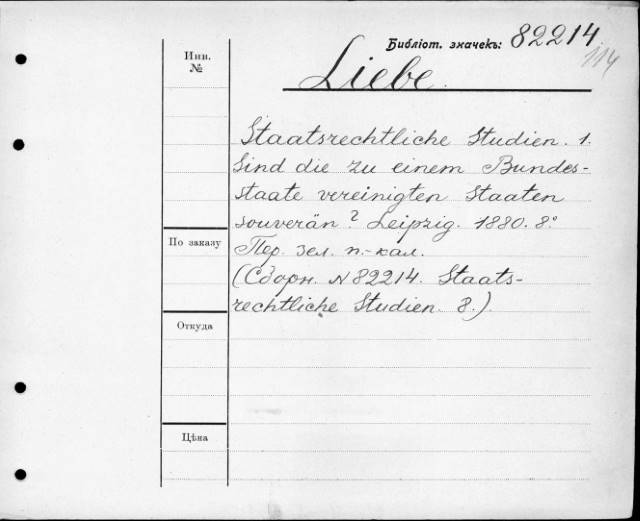 Библіот. значекъ: 82214
114
Инв.
№
Liebe.
Staatsrechtliche Studien. 1.
Sind die zu einem Bundes-
staate vereinigten Staaten
souverän? Leipzig. 1880. 8.°
По заказу
Пер. зел. п.-кал.
(Сборн. №82214. Staats-
rechtliche Studien. 8.).
Откуда
Цѣна